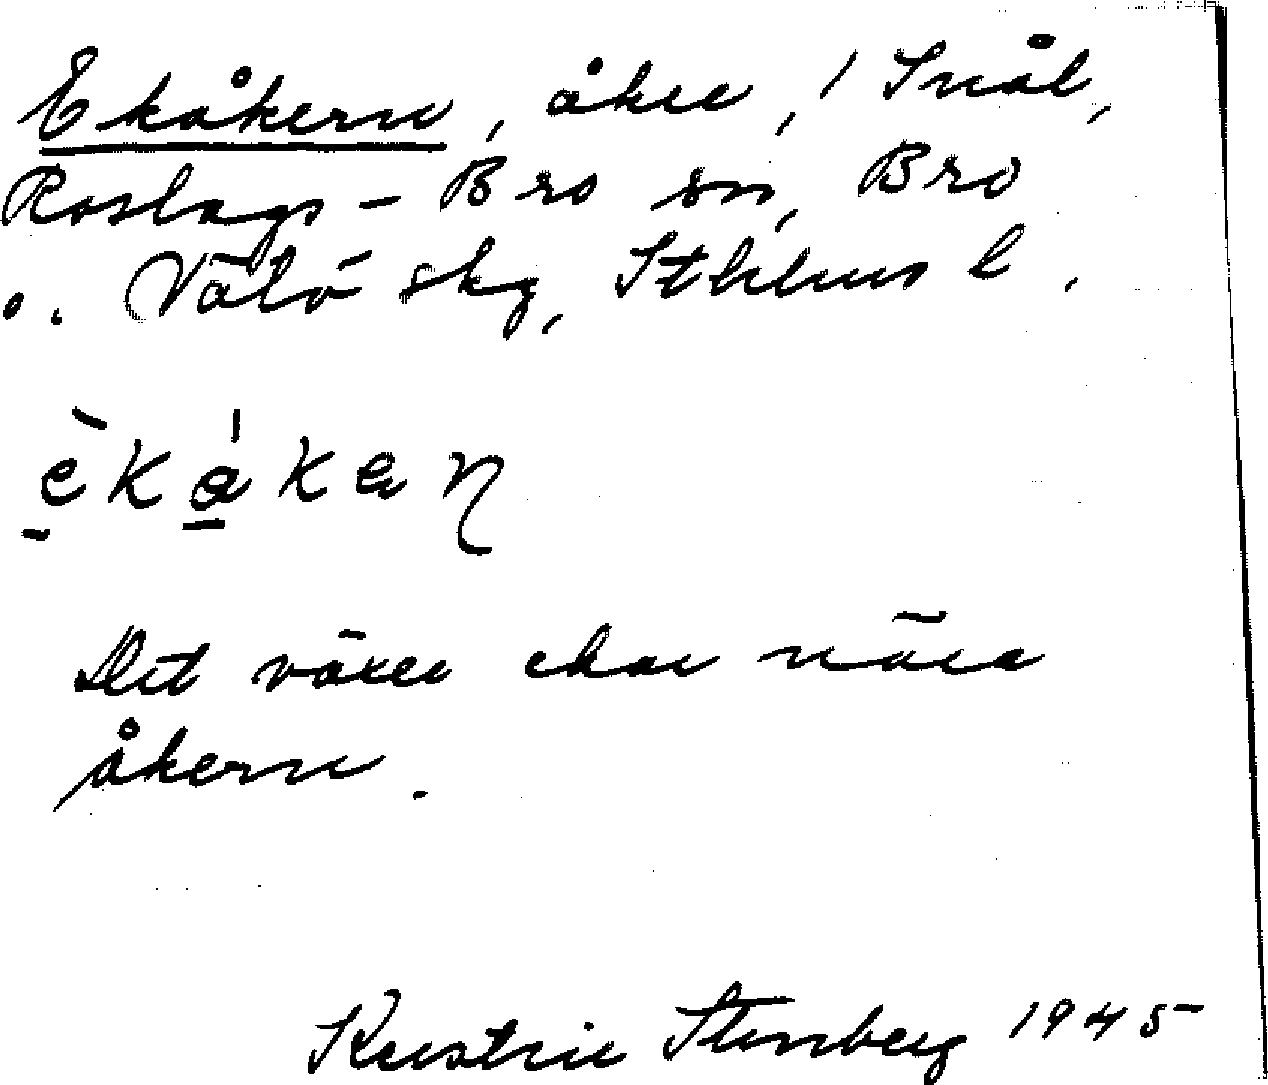 Ekåkern, åker, i Snål,
Roslags-Bro sn, Bro
o. Vätö skg, Sthlms l.
èkákan
Det växer ekar nära
åkern.
Kerstin Stenberg 1945